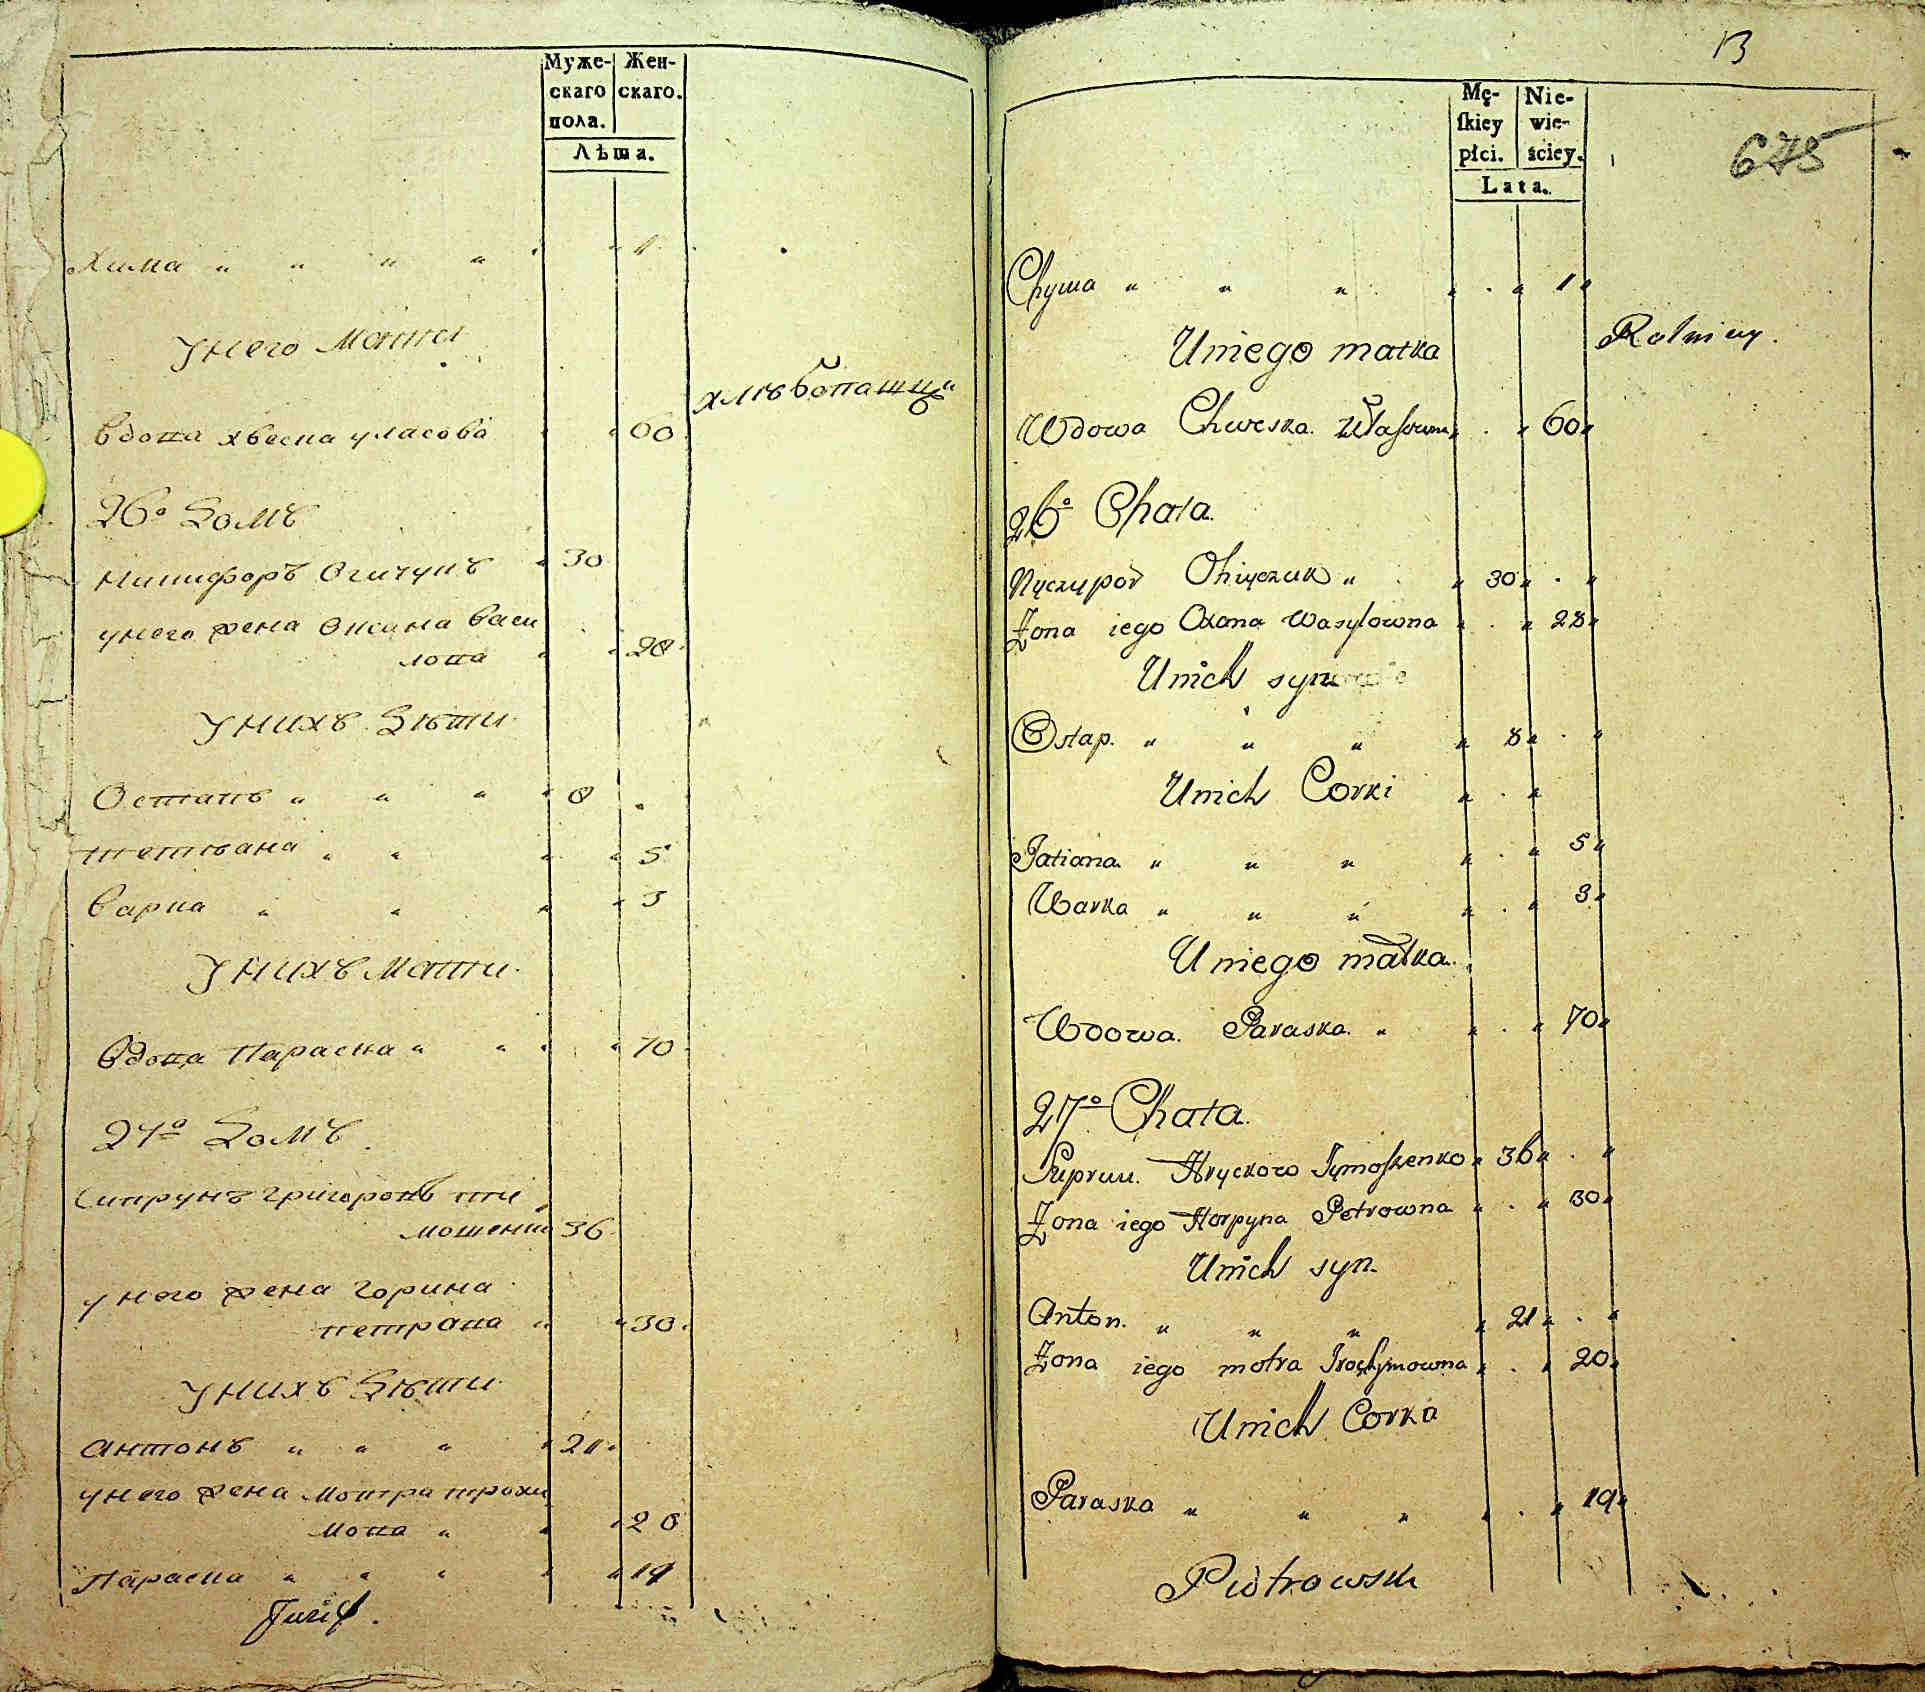 Муже- Жен-
скаго скаго.
пола.
Лѣта.
Хима " " " " 1
Унего Мати
хлѣбопашци
вдова хвеска уласова 60
26º Домъ
Никифоръ Огичукъ 30
унего жена Оксана васи
лова 28
Унихъ Дѣти
Остапъ " " " 8
тетяна " " 5
варка " " 3
Унихъ Мати
вдова Параска " " 70
27º Домъ
Супрунъ григоровъ ти
мошенко 36
унего жена горпина
петрова " 30
Унихъ Дѣти
антонъ " " " 21
унего жена Мотра трохи
мова " 20
Параска " " " 19
13
Mę- Nie-
skiey wie-
płci. ściey.
Lata.
675
Chyma " " " 1
Uniego matka
Rolnicy.
Wdowa Chweska Własowna 60
26º Chata.
Nyczypor Ohiyczuk " 30
Żona iego Oxana Wasylowna 28
Unich syn
Ostap. " " " 8
Unich Corki
Tatiana " " " 5
Warka " " " 3
Uniego matka.
Wdowa. Paraska. " 70
27º Chata.
Suprun. Hryckow Tymoszenko 36
Żona iego Horpyna Petrowna 30
Unich syn.
Anton. " " " 21
Żona iego motra Trochymowna 20
Unich Corka
Paraska " " " 19
Piotrowski